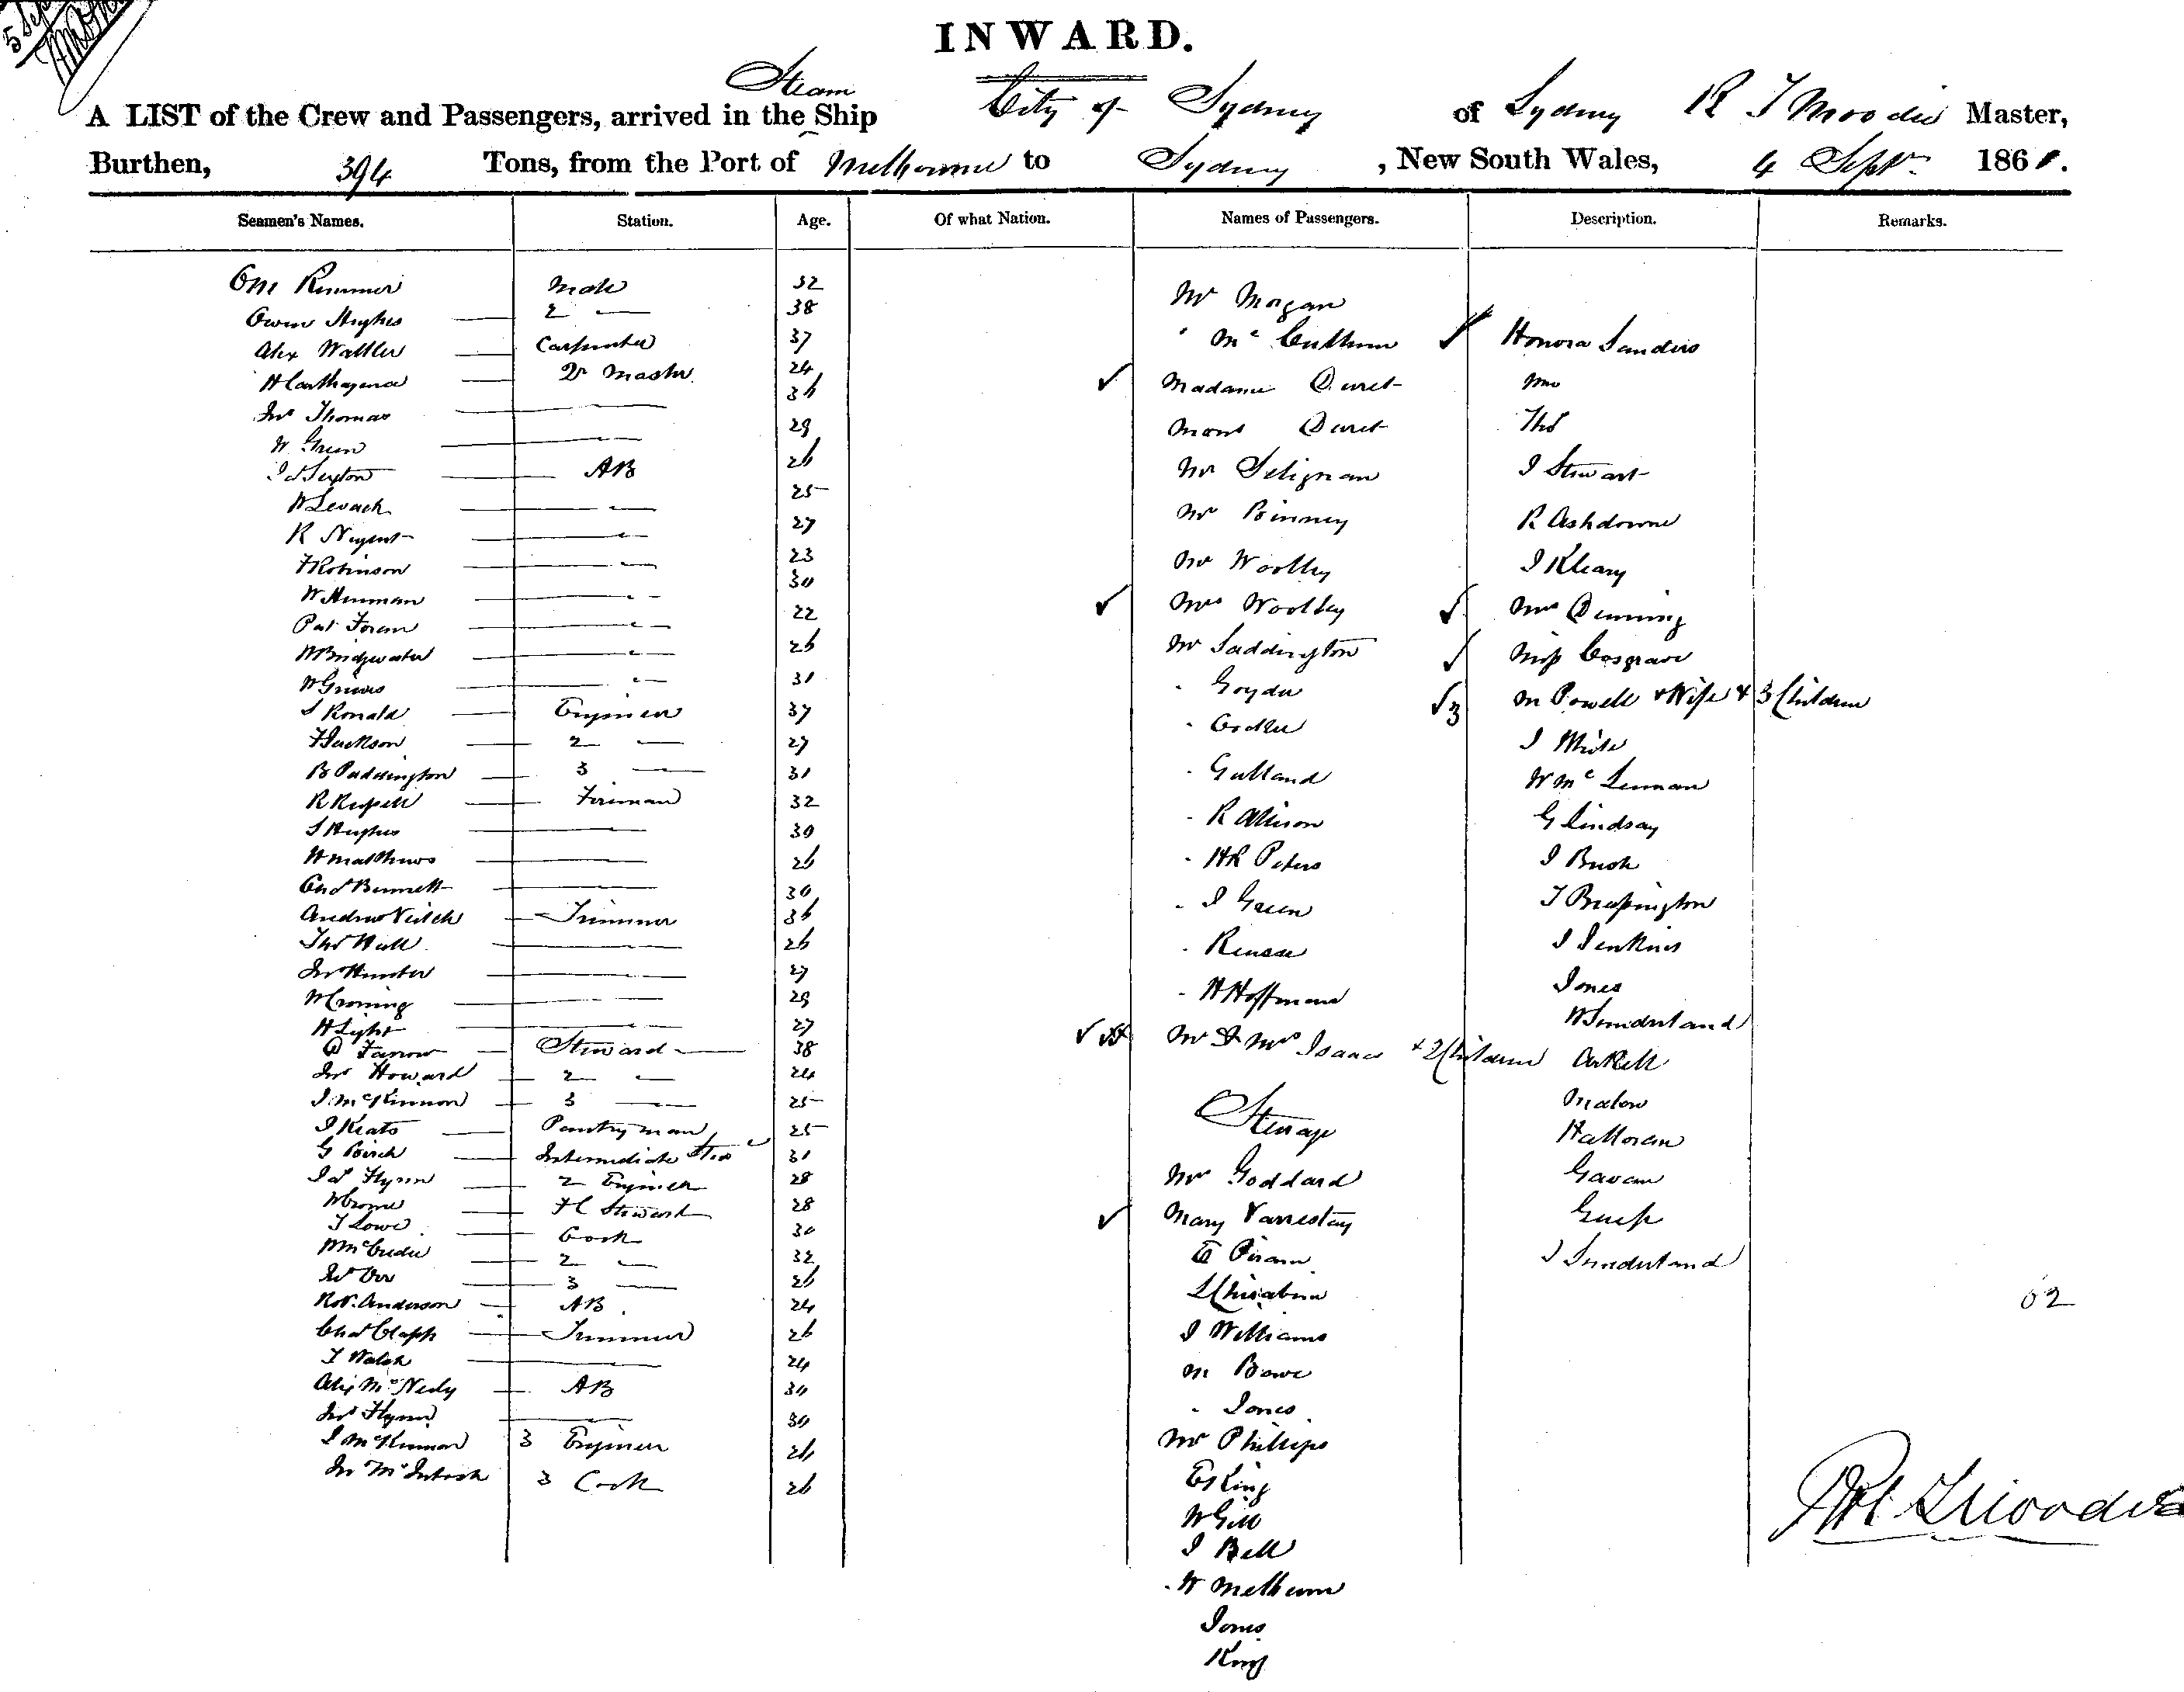 5 Sep
INWARD.
A LIST of the Crew and Passengers, arrived in the Steam Ship City of Sydney of Sydney R T Moodie Master,
Burthen, 394 Tons, from the Port of Melbourne to Sydney, New South Wales, 4 Sept 1861.
Seamen's Names. Station. Age. Of what Nation. Names of Passengers. Description. Remarks.
Rimmer Mate 32
Owen Hughes 2 — 38
Alex Walker Carpenter 37
H Carthagena Qr Master 24
Jno Thomas — 36
W Green — 29
Jas Sexton AB 26
W Levach — 25
R Nugent — 27
F Robinson — 23
W Henman — 30
Pat Foran — 22
W Bridgwater — 26
W Grieves — 31
J Ronald Engineer 37
F Jackson 2 — 27
B Paddington 3 — 31
R Russell Fireman 32
J Hughes — 30
H Matthews — 26
Chas Bennett — 30
Andrew Veitch Trimmer 36
Thos Hall — 26
Jno Hunter — 27
W Croning — 29
H Light — 27
D Farrow Steward 38
Jno Howard 2 — 24
J McKinnon 3 — 25
J Keats Pantryman 25
G Birch Intermediate Stew 31
Jas Flynn 2 Engineer 28
W Crome F C Steward 28
T Lowe Cook 30
W McCredie 2 — 32
Jas Orr 3 — 26
Robt. Anderson AB 24
Chas Clapp Trimmer 26
T Walsh — 24
Alex McNeely AB 30
Jno Flynn — 30
J McKinnon 3 Engineer 26
Jno McIntosh 3 Cook 26
Mr Morgan
" McCullum
Madame Duret
Mons Duret
Mr Selignan
Mr Binney
Mr Woolley
Mrs Woolley
Mr Saddington
" Goyder
" Gulland
" R Allison
" H R Peters
" J Green
" H Hoffman
Mr & Mrs Isaacs + 2 Children
Steerage
Mr Goddard
Mary Varrestay
J Williams
M Bowe
" Jones
Mr Phillips
E King
W Gill
J Bell
W Melburn
Jones
King
Honora Sanders
Mrs
Thos
J Stewart
R Ashdowne
J Kleary
Mrs Denning
Miss Cosgrave
3 M Powell + Wife + 3 Children
J White
W McLennan
G Lindsay
J Bush
T Brassington
J Jenkins
Jones
W Sunderland
Arkell
Malow
Halloran
Gavan
Guess
J Sunderland
62
R T Moodie